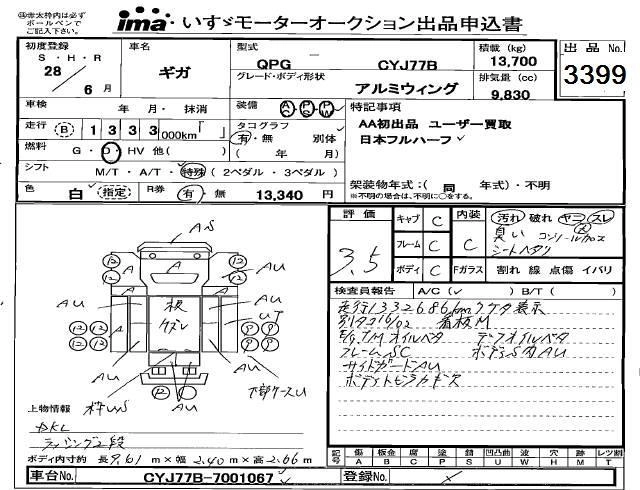 ㊟赤太枠内は必ず
ボールペンで
ご記入下さい。
ima いすゞモーターオークション出品申込書
初度登録
S・H・R
28 / 6 月
車名
ギガ
型式
QPG CYJ77B
グレード・ボディ形状
アルミウィング
積載 (kg)
13,700
排気量 (cc)
9,830
出品 No.
3399
車検 年 月・ 抹消
装備 AC PS PW
走行 (B) 1 3 3 3 000km「 」
タコグラフ
有・無 別体
( 年 月)
燃料 G・D・HV 他( )
シフト M/T・A/T・特殊 (2ペダル・3ペダル)
色 白 (指定)
R券 有・無 13,340 円
特記事項
AA初出品 ユーザー買取
日本フルハーフ
架装物年式:( 同 年式)・不明
※不明の場合は、不明に○をする。
評価 3.5
キャブ C
フレーム C
ボディ C
内装 C
Fガラス
汚れ 破れ ヤコ スレ
臭い
シートヘタリ
割れ 線 点傷 イバリ
検査員報告 A/C(✓ ) B/T( )
走行1332686km 7ケタ表示
看板M
E/g,T/M オイルベタ デフオイルベタ
フレームSC ボディS内AU
サイドガードAU
AS
A
A
AU
AU
AU
AU
UT
AU
AU
AU
板
12 12
9 9
下部ケースU
上物情報
ラッシング2段
ボディ内寸約 長 9.61 m×幅 2.40 m×高 2.66 m
記号 傷 A 板金 B 腐 C 塗 P 錆 S 凹凸曲 U 波 W 穴 H 跡 M レツ割 T
車台No. CYJ77B-7001067
登録No.